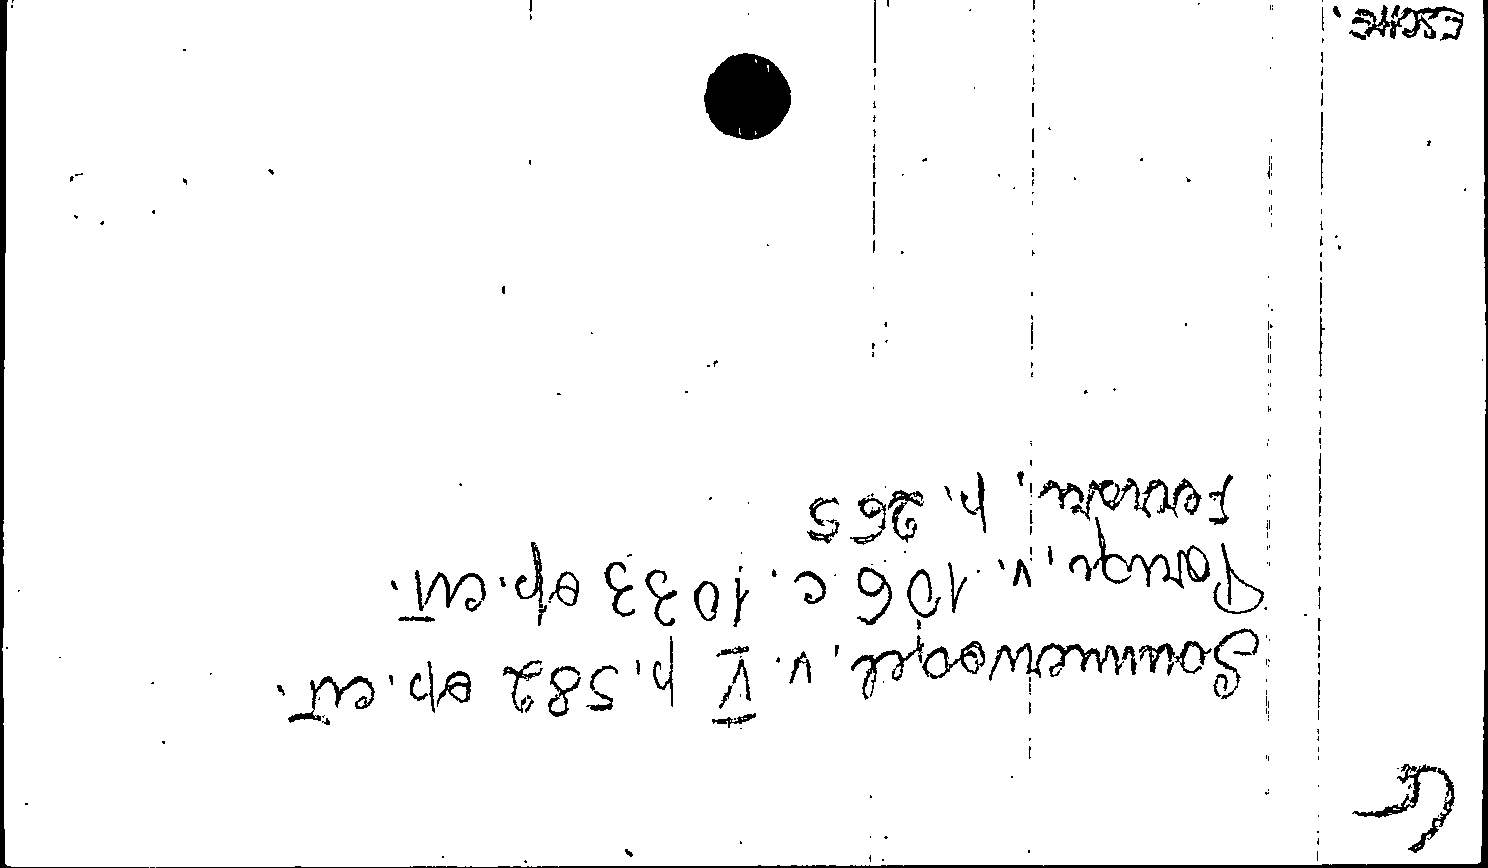 Sommervogel, v. V p. 582 op. cit.
Parigi, v. 106 c. 1033 op. cit.
Ferrari, p. 265